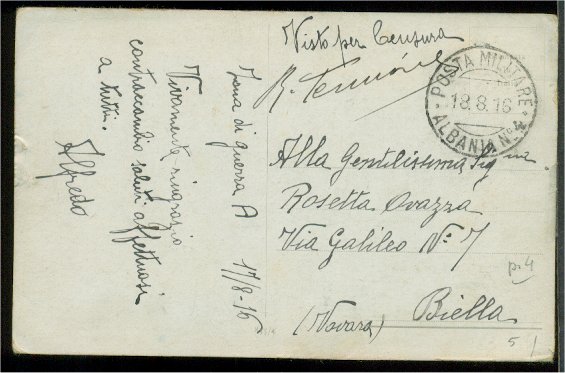 Visto per Censura
POSTA MILITARE
18.8.16
ALBANIA N. 4
Alla Gentilissima Sig.na
Rosetta Ovazza
Via Galileo N. 7
Biella
(Novara)
p.4
5
Zona di guerra A 17/8-16
Vivamente ringrazio
contraccambio saluti affettuosi
a tutti.
Alfredo